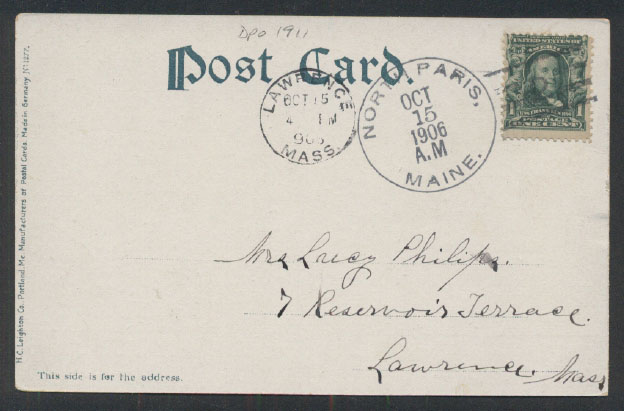 Dpo 1911
Post Card.
LAWRENCE
OCT 15
4 PM
MASS.
NORTH PARIS,
OCT
15
1906
A.M
MAINE.
UNITED STATES OF
AMERICA
POSTAGE
ONE CENT
Mrs Lucy Philips.
7 Reservoir Terrace.
Lawrence. Mass.
This side is for the address.
H.C. Leighton Co. Portland, Me. Manufacturers of Postal Cards. Made in Germany